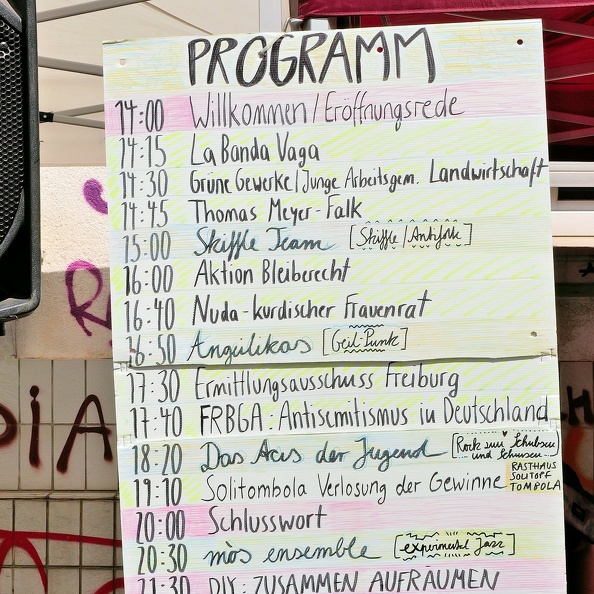 PROGRAMM
14:00 Willkommen/Eröffnungsrede
14:15 La Banda Vaga
14:30 Grüne Gewerke/Junge Arbeitsgem. Landwirtschaft
14:45 Thomas Meyer-Falk
15:00 Skiffle Team [Skiffle/Antifolk]
16:00 Aktion Bleiberecht
16:40 Nuda-kurdischer Frauenrat
16:50 Angelikas [Geil-Punk]
17:30 Ermittlungsausschuss Freiburg
17:40 FRBGA: Antisemitismus in Deutschland
18:20 Das Aus der Jugend [Rock zum Schubsen
und Schmusen]
19:10 Solitombola Verlosung der Gewinne RASTHAUS
SOLITOPF
TOMBOLA
20:00 Schlusswort
20:30 mòs ensemble [experimental Jazz]
21:30 DIY: ZUSAMMEN AUFRÄUMEN